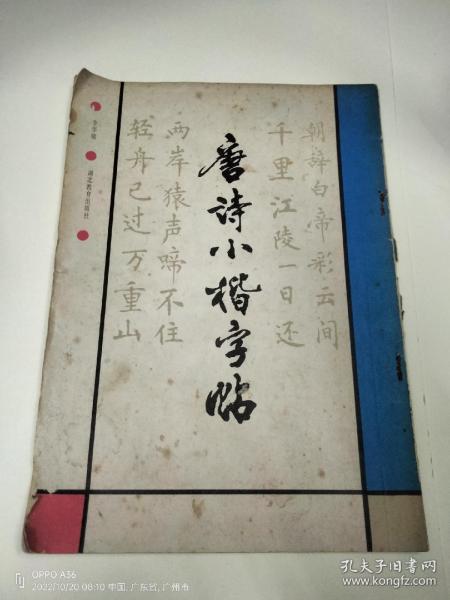 唐诗小楷字帖
朝辞白帝彩云间
千里江陵一日还
两岸猿声啼不住
轻舟已过万重山
湖北教育出版社
OPPO A36
2022/10/20 08:10 中国, 广东省, 广州市
孔夫子旧书网
www.kongfz.com